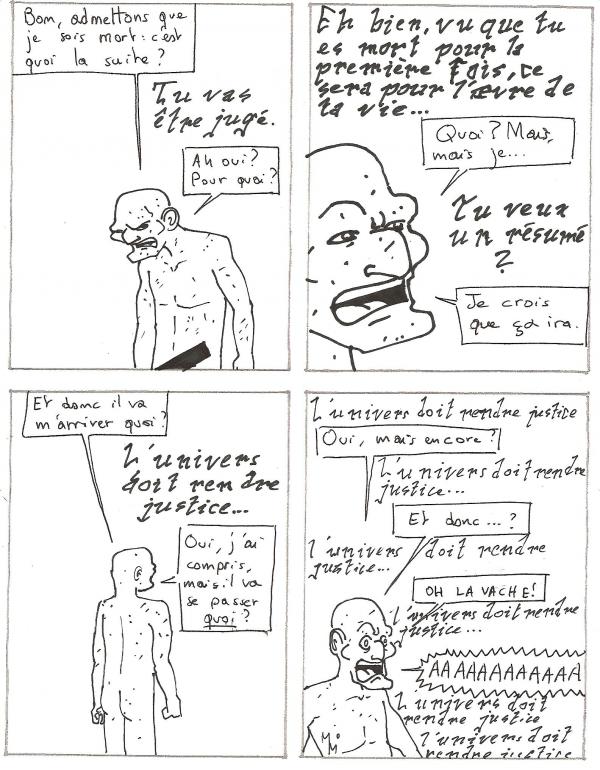 Bon, admettons que
je sois mort : c'est
quoi la suite ?
Tu vas
être jugé.
Ah oui ?
Pour quoi ?
Eh bien, vu que tu
es mort pour la
première fois, ce
sera pour l'œuvre de
ta vie...
Quoi ? Mais,
mais je...
Tu veux
un résumé
?
Je crois
que ça ira.
Et donc il va
m'arriver quoi ?
L'univers
doit rendre
justice...
Oui, j'ai
compris,
mais il va
se passer
quoi ?
L'univers doit rendre justice
Oui, mais encore ?
L'univers doit rendre
justice...
Et donc... ?
l'univers doit rendre
justice...
OH LA VACHE !
l'univers doit rendre
justice...
AAAAAAAAAAAA
L'univers doit
rendre justice
l'univers doit
rendre justice